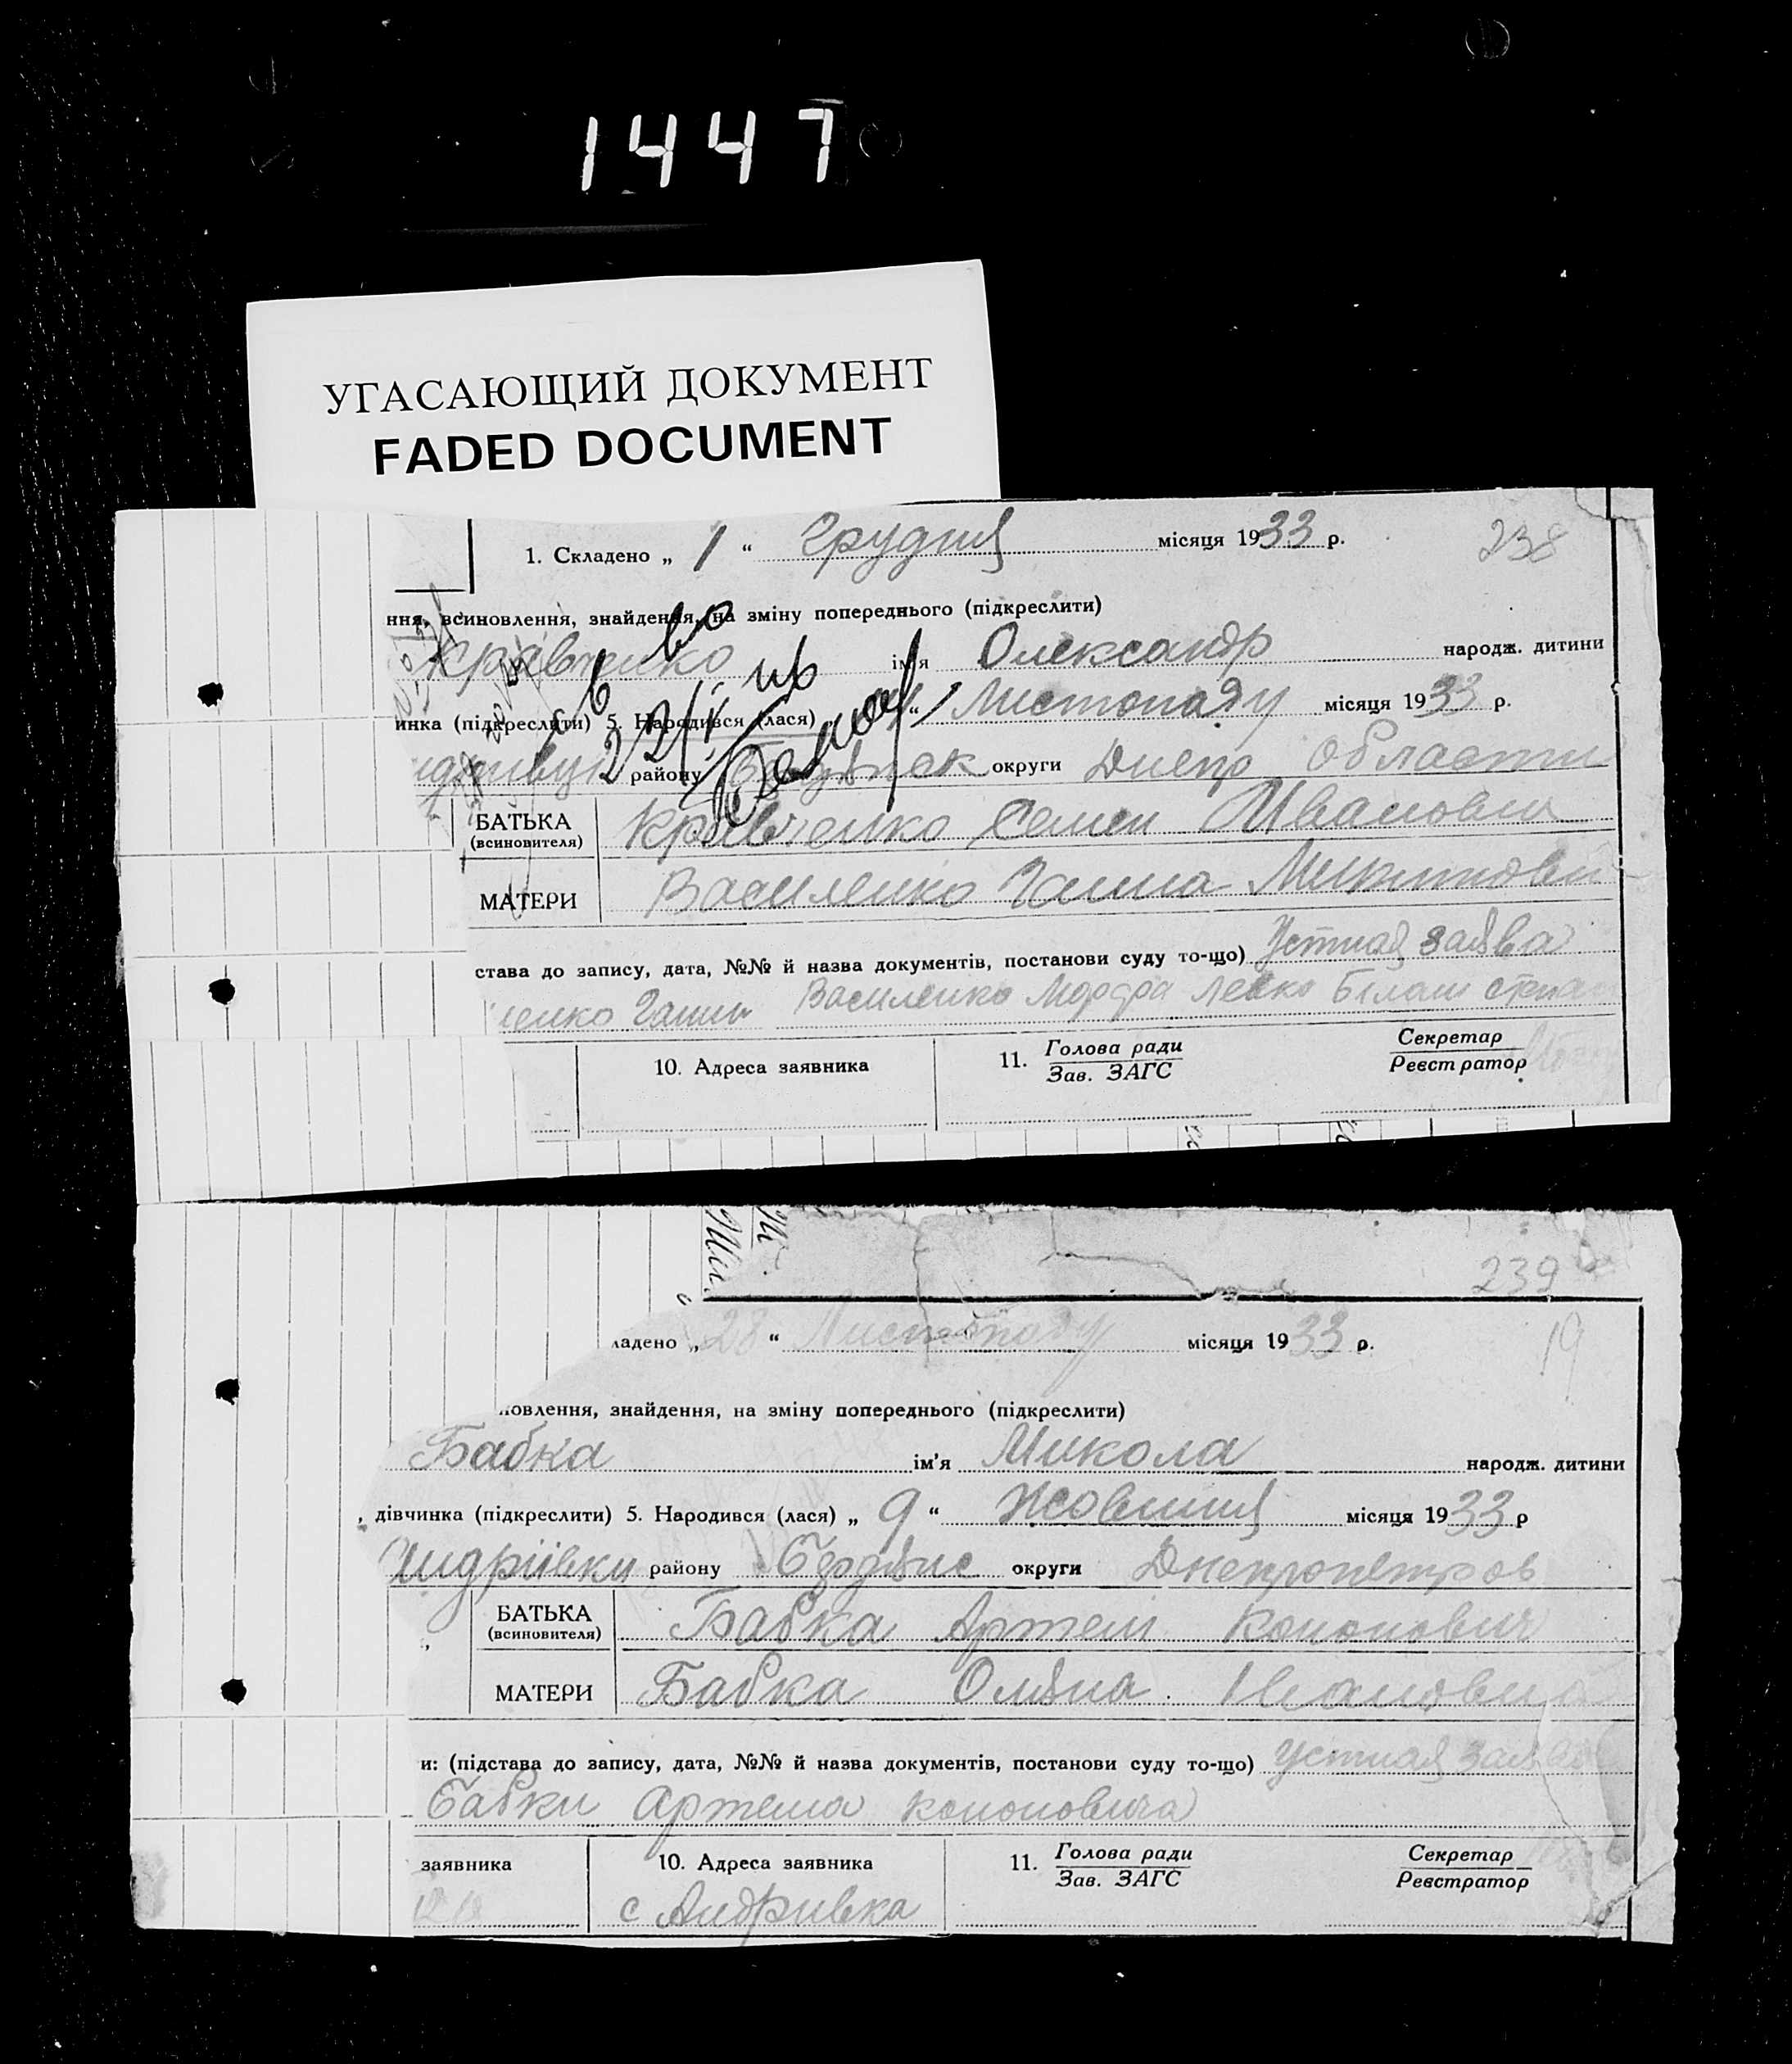 1447
УГАСАЮЩИЙ ДОКУМЕНТ
FADED DOCUMENT
238
1. Складено „ 1 “ Грудня місяця 1933 р.
ння, всиновлення, знайдення, на зміну попереднього (підкреслити)
Кравченко ім'я Олександр народж. дитини
инка (підкреслити) 5. Народився (лася) “ Листопаду місяця 1933 р.
району округи Днепр Области
БАТЬКА (всиновителя) Кравченко Семен Иванович
МАТЕРИ Василенко Ганна
става до запису, дата, №№ й назва документів, постанови суду то-що) Устная заява
Ганни Василенко Левко Білаш
10. Адреса заявника 11. Голова ради Секретар
Зав. ЗАГС Реєстратор
239
ладено „ 28 “ Листопаду місяця 1933 р. 19
новлення, знайдення, на зміну попереднього (підкреслити)
Бабка ім'я Микола народж. дитини
, дівчинка (підкреслити) 5. Народився (лася) „ 9 “ Жовтня місяця 1933 р
району округи Днепропетров
БАТЬКА (всиновителя) Бабка Артем Кононович
МАТЕРИ Бабка Оляна Івановна
и: (підстава до запису, дата, №№ й назва документів, постанови суду то-що) Устная заява
Бабки Артема Кононовича
заявника 10. Адреса заявника 11. Голова ради Секретар
Зав. ЗАГС Реєстратор
с Андривка